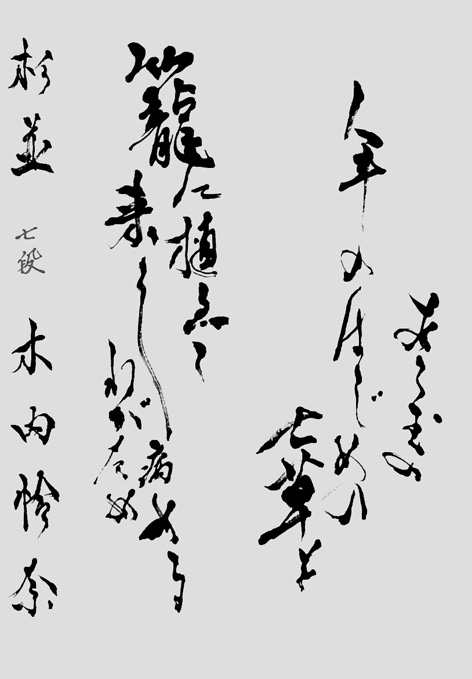 あら玉の
年のはじめの
七草を
籠に植ゑて
来し病める
わがため
杉並 七段 木内怜奈